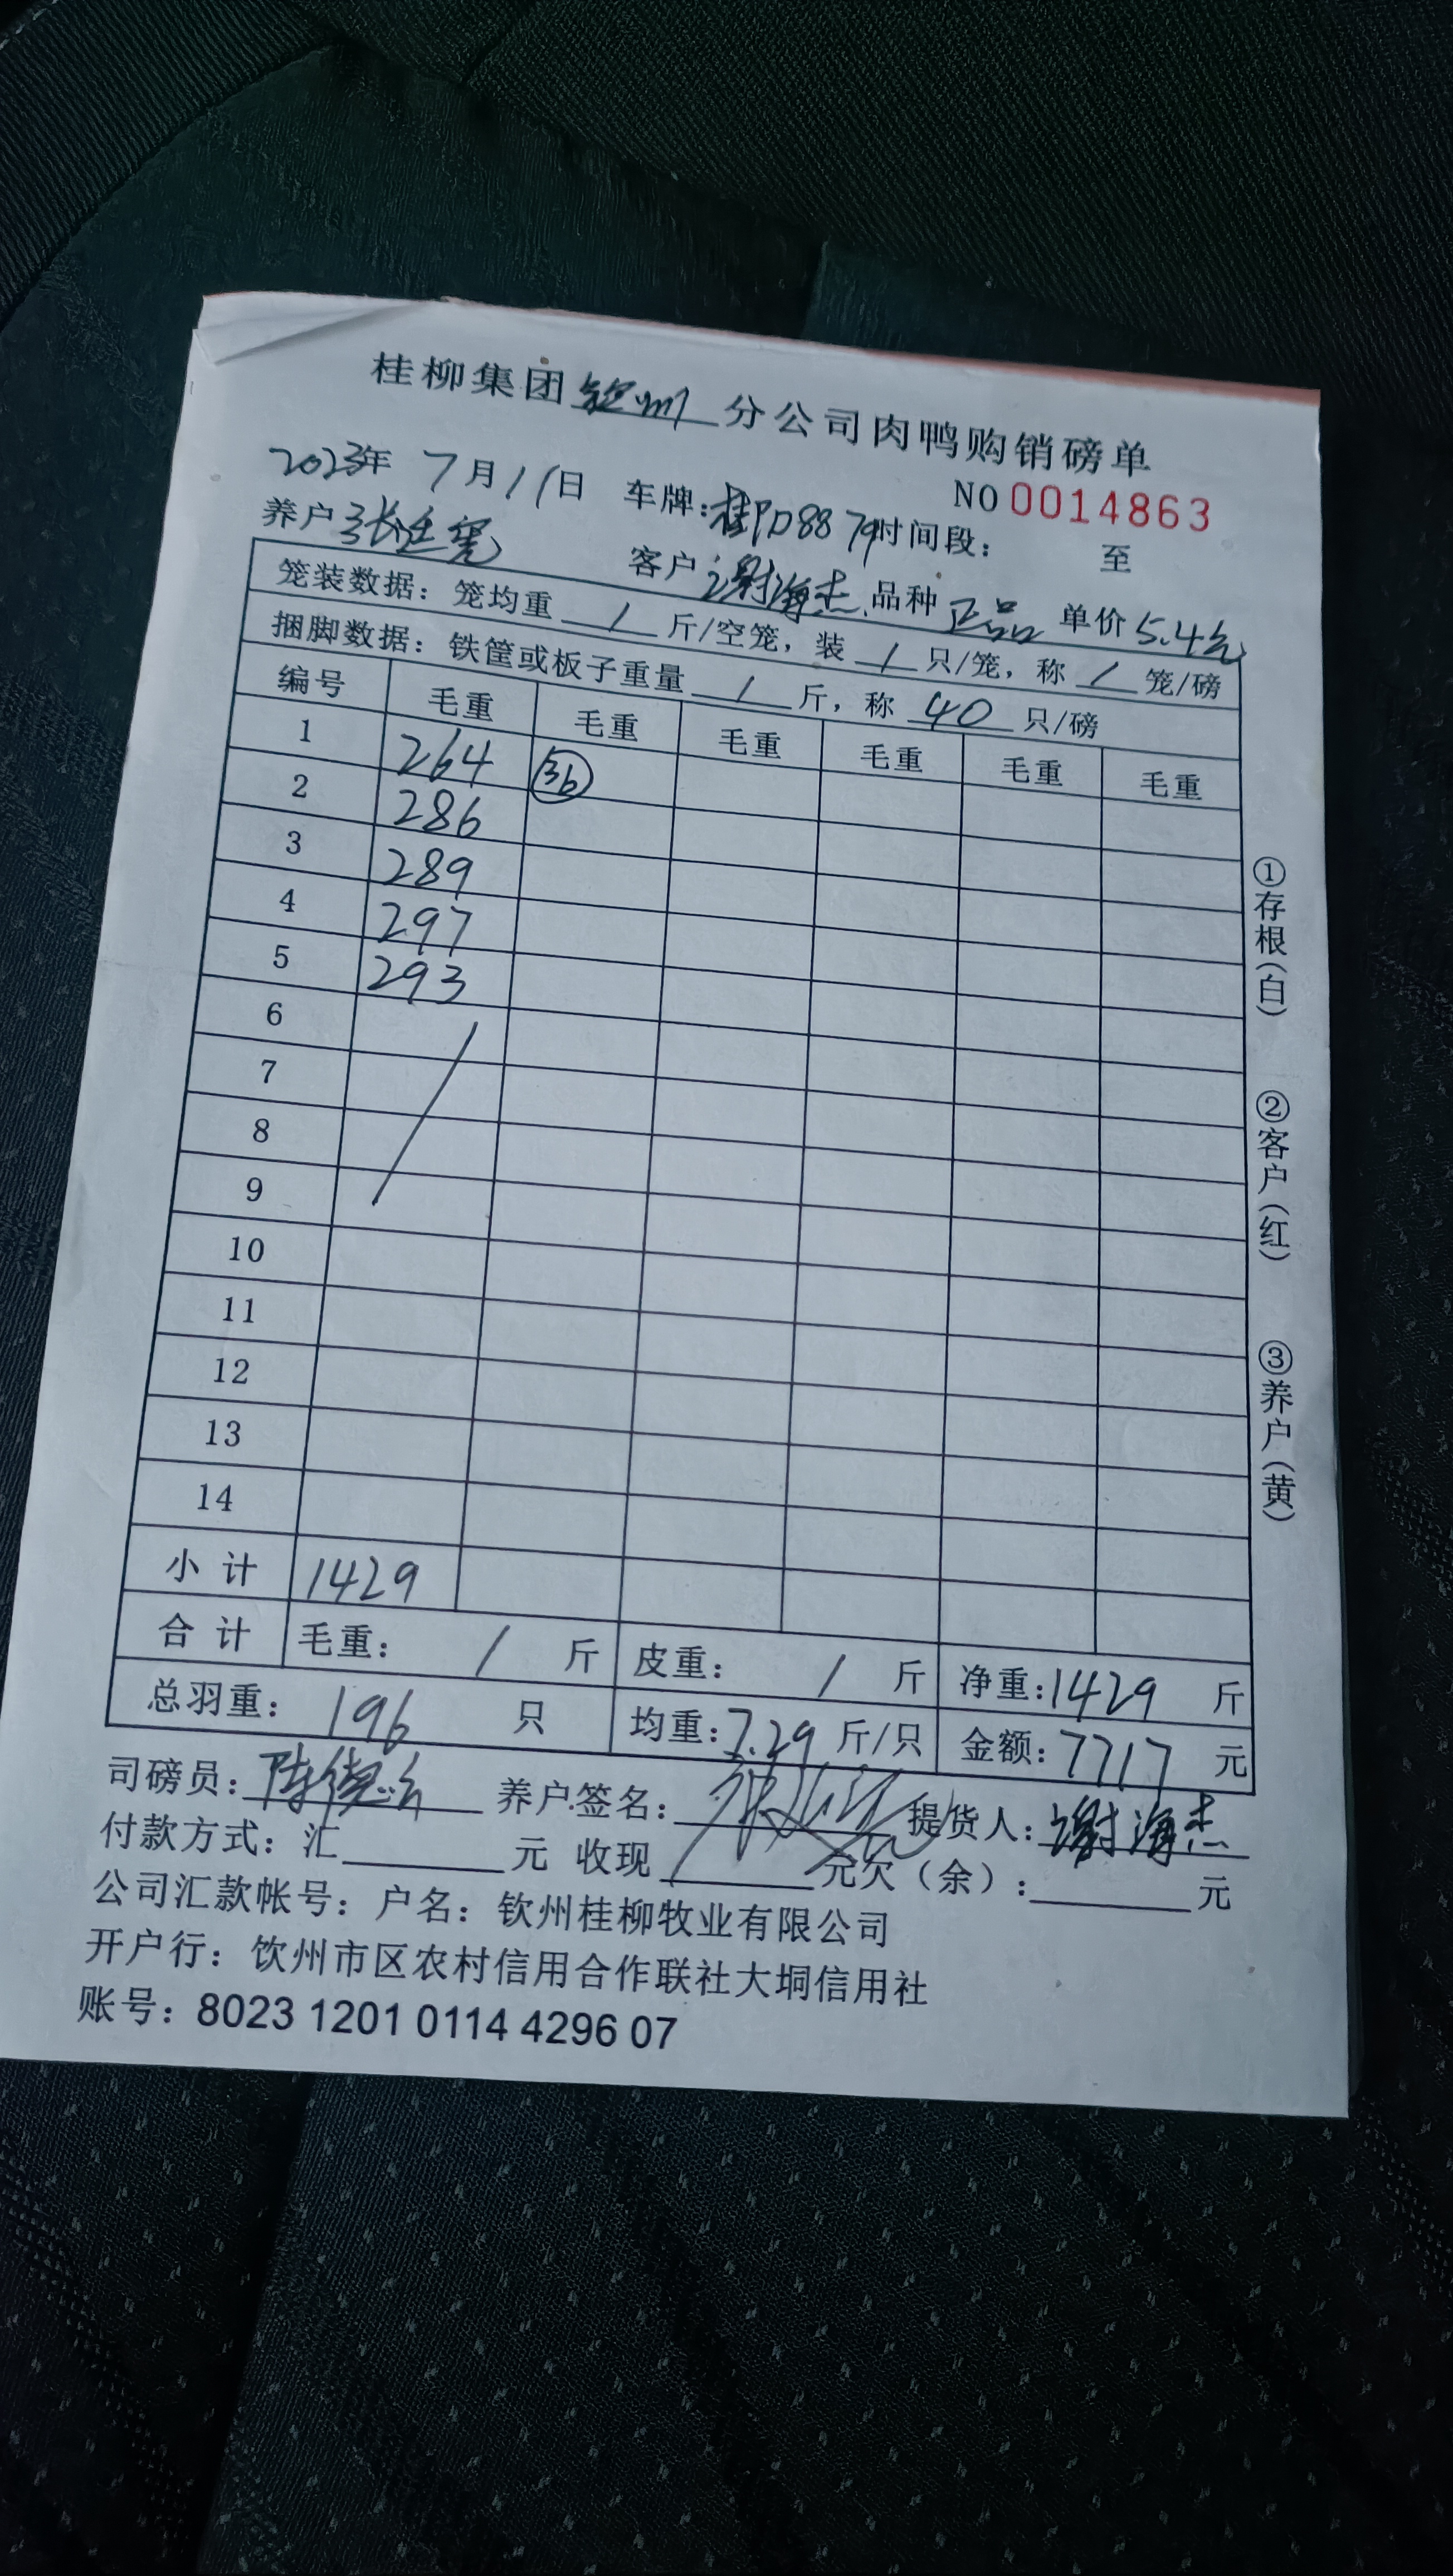 桂柳集团钦州分公司肉鸭购销磅单
NO 0014863
2023年 7月11日 车牌: 8879 时间段: 至
养户 张廷 客户 谢海杰 品种 正品 单价 5.4元
笼装数据: 笼均重 / 斤/空笼, 装 / 只/笼, 称 / 笼/磅
捆脚数据: 铁筐或板子重量 / 斤, 称 40 只/磅
编号 毛重 毛重 毛重 毛重 毛重 毛重
1 264 36
2 286
3 289
4 297
5 293
6
7
8
9
10
11
12
13
14
小计 1429
合计 毛重: / 斤 皮重: / 斤 净重: 1429 斤
总羽重: 196 只 均重: 7.29 斤/只 金额: 7717 元
司磅员: 陈 养户签名: 提货人: 谢海杰
付款方式: 汇 元 收现 元 欠(余): 元
公司汇款帐号: 户名: 钦州桂柳牧业有限公司
开户行: 饮州市区农村信用合作联社大垌信用社
账号: 8023 1201 0114 4296 07
①存根(白)
②客户(红)
③养户(黄)